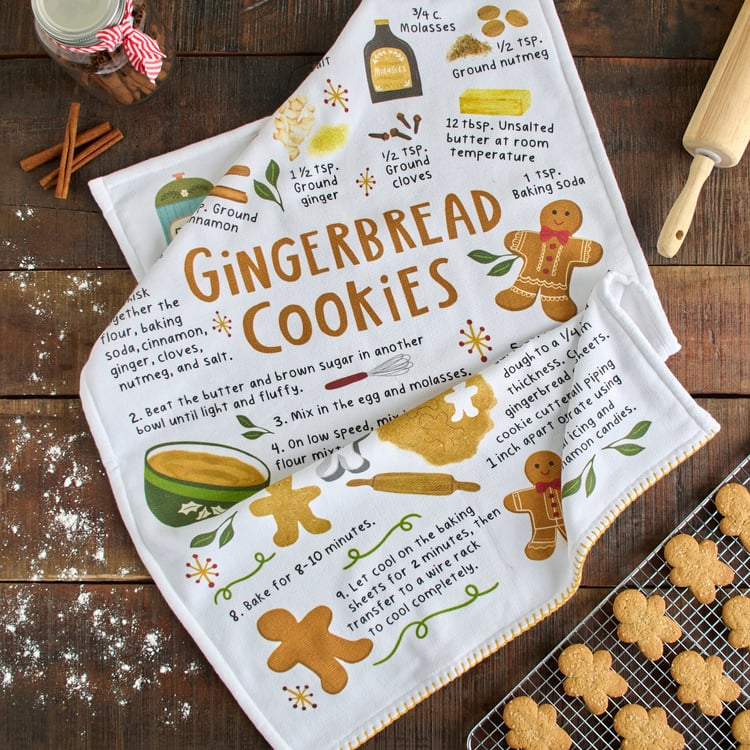 3/4 c.
Molasses
MOLASSES
1/2 tsp.
Ground nutmeg
12 tbsp. Unsalted
butter at room
temperature
1 1/2 tsp.
Ground
ginger
1/2 tsp.
Ground
cloves
1 tsp.
Baking soda
Ground
GINGERBREAD
COOKIES
the
flour, baking
soda, cinnamon,
ginger, cloves,
nutmeg, and salt.
2. Beat the butter and brown sugar in another
bowl until light and fluffy.
3. Mix in the egg and molasses.
4. On low speed, mix
flour
dough to a 1/4 in
thickness.
gingerbread
cookie cutter
1 inch apart
piping
using
icing and
candies.
8. Bake for 8-10 minutes.
9. Let cool on the baking
sheets for 2 minutes, then
transfer to a wire rack
to cool completely.